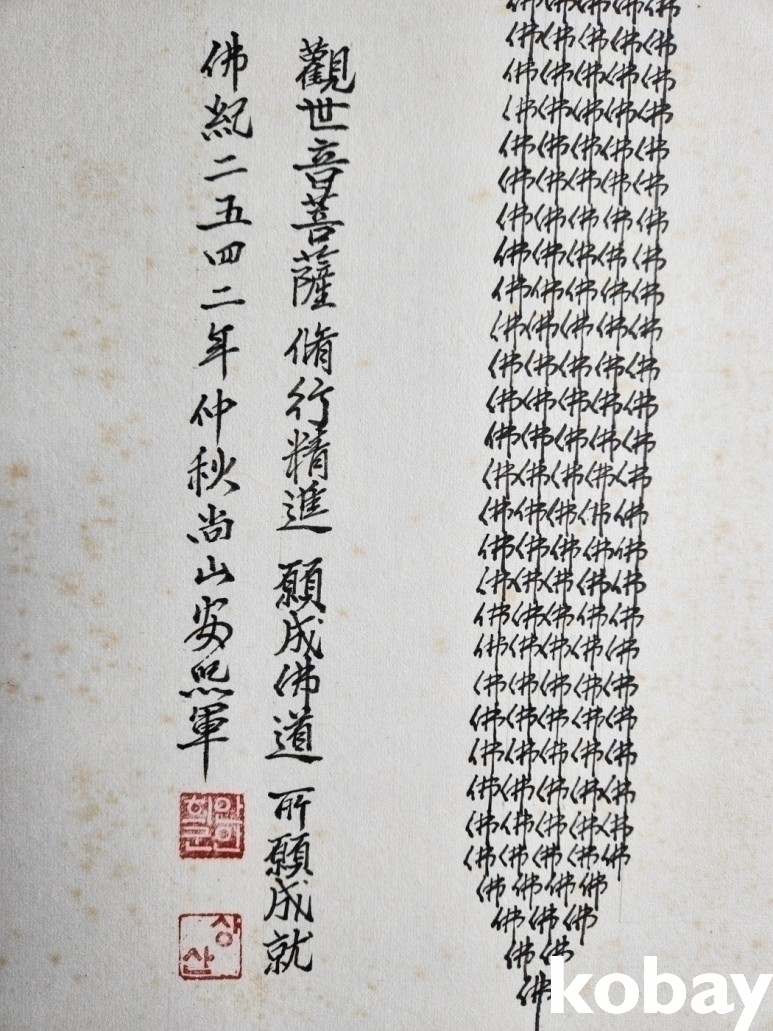 佛佛佛佛佛
佛佛佛佛佛
佛佛佛佛佛
佛佛佛佛佛
佛佛佛佛佛
佛佛佛佛佛
佛佛佛佛佛
佛佛佛佛佛
佛佛佛佛佛
佛佛佛佛佛
佛佛佛佛佛
佛佛佛佛佛
佛佛佛佛佛
佛佛佛佛佛
佛佛佛佛佛
佛佛佛佛佛
佛佛佛佛佛
佛佛佛佛佛
佛佛佛佛佛
佛佛佛佛佛
佛佛佛佛佛
佛佛佛佛佛
佛佛佛佛佛
佛佛佛佛佛
佛佛佛佛佛
佛佛佛佛
佛佛佛
佛佛
佛
觀世音菩薩 脩行精進 願成佛道 所願成就
佛紀二五四二年仲秋尚山安熙軍
안희군인
상산
kobay